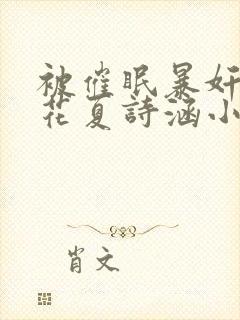 被催眠暴奸
花夏詩涵小
肖文